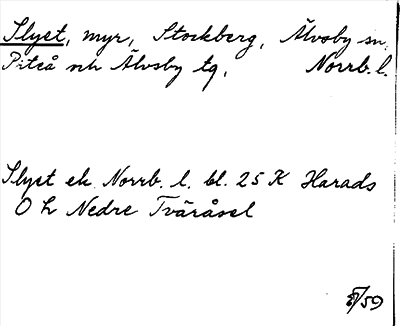 Slyet, myr, Stockberg, Älvsby sn,
Piteå och Älvsby tg, Norrb. l.
Slyet ek. Norrb. l. bl. 25 K Harads
0 h Nedre Tväråsel
/59